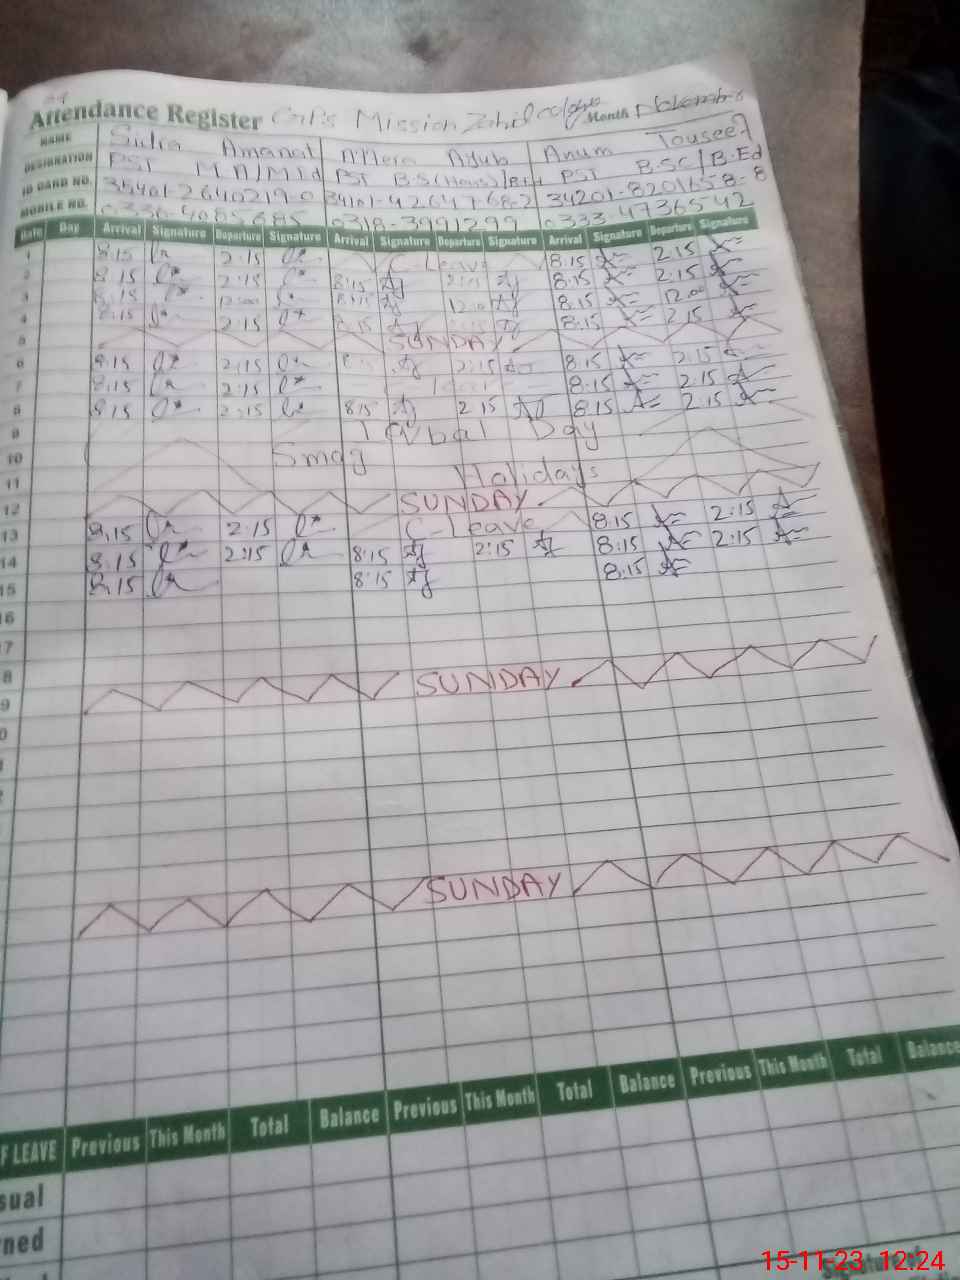 Attendance Register Girls Mission Zahid colony Month November
NAME Amanat Anum Touseef
DESIGNATION PST PST B.S(Hons) PST B.SC/B.Ed
ID CARD NO. 35401-2640219-0 34201-8201658-8
MOBILE NO. 0318-3991299 0333-4736542
Date Day Arrival Signature Departure Signature Arrival Signature Departure Signature Arrival Signature Departure Signature
1 8:15 2:15 C-Leave 8:15 2:15
2 8:15 2:15 8:15 2:15 8:15 2:15
3 8:15 12:00 8:15 12:00 8:15 12:00
4 8:15 2:15 8:15 8:15 2:15
5 SUNDAY
6 8:15 2:15 8 2:15 8:15 2:15
7 8:15 2:15 8:15 2:15
8 8:15 2:15 8:15 2 15 8:15 2:15
9 Iqbal Day
10 Smog
11 Holidays
12 SUNDAY
13 8:15 2:15 C-Leave 8:15 2:15
14 8:15 2:15 8:15 2:15 8:15 2:15
15 8:15 8:15 8:15
6
7
8 SUNDAY
9
0
SUNDAY
F LEAVE Previous This Month Total Balance Previous This Month Total Balance Previous This Month Total Balance
sual
ned
15-11-23 12:24